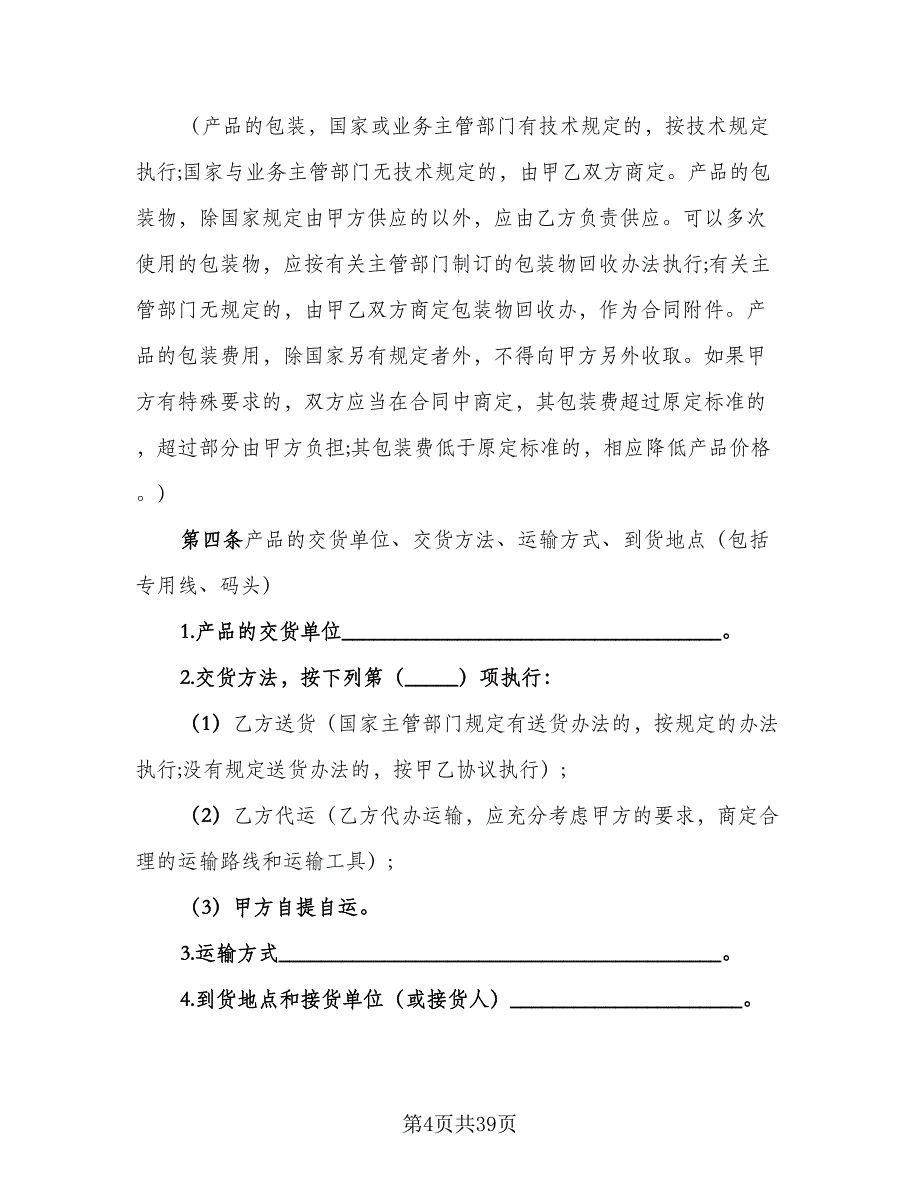 （产品的包装，国家或业务主管部门有技术规定的，按技术规定
执行;国家与业务主管部门无技术规定的，由甲乙双方商定。产品的包
装物，除国家规定由甲方供应的以外，应由乙方负责供应。可以多次
使用的包装物，应按有关主管部门制订的包装物回收办法执行;有关主
管部门无规定的，由甲乙双方商定包装物回收办，作为合同附件。产
品的包装费用，除国家另有规定者外，不得向甲方另外收取。如果甲
方有特殊要求的，双方应当在合同中商定，其包装费超过原定标准的
，超过部分由甲方负担;其包装费低于原定标准的，相应降低产品价格
。）
第四条产品的交货单位、交货方法、运输方式、到货地点（包括
专用线、码头）
1.产品的交货单位____________________________________。
2.交货方法，按下列第（_____）项执行：
（1）乙方送货（国家主管部门规定有送货办法的，按规定的办法
执行;没有规定送货办法的，按甲乙协议执行）;
（2）乙方代运（乙方代办运输，应充分考虑甲方的要求，商定合
理的运输路线和运输工具）;
（3）甲方自提自运。
3.运输方式__________________________________________。
4.到货地点和接货单位（或接货人）______________________。
第4页共39页